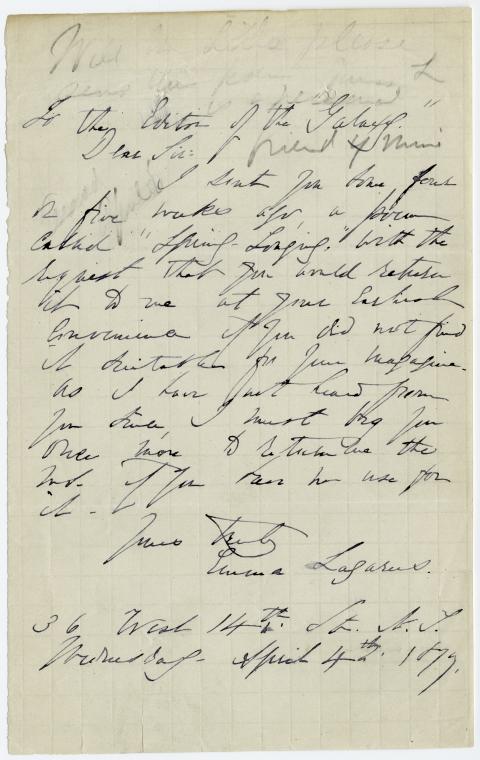 Will Mr. Sills please
send this poem
is a personal
friend of mine
To the Editor of the "Galaxy."
Dear Sir:
I sent you some four
or five weeks ago, a poem
called "Spring-Longing," with the
request that you would return
it to me at your earliest
convenience if you did not find
it suitable for your magazine.
As I have not heard from
you since, I must beg you
once more to return me the
ms. if you have no use for
it.
Yours Truly
Emma Lazarus.
36 West 14th. St. N.Y.
Wednesday - April 4th. 187